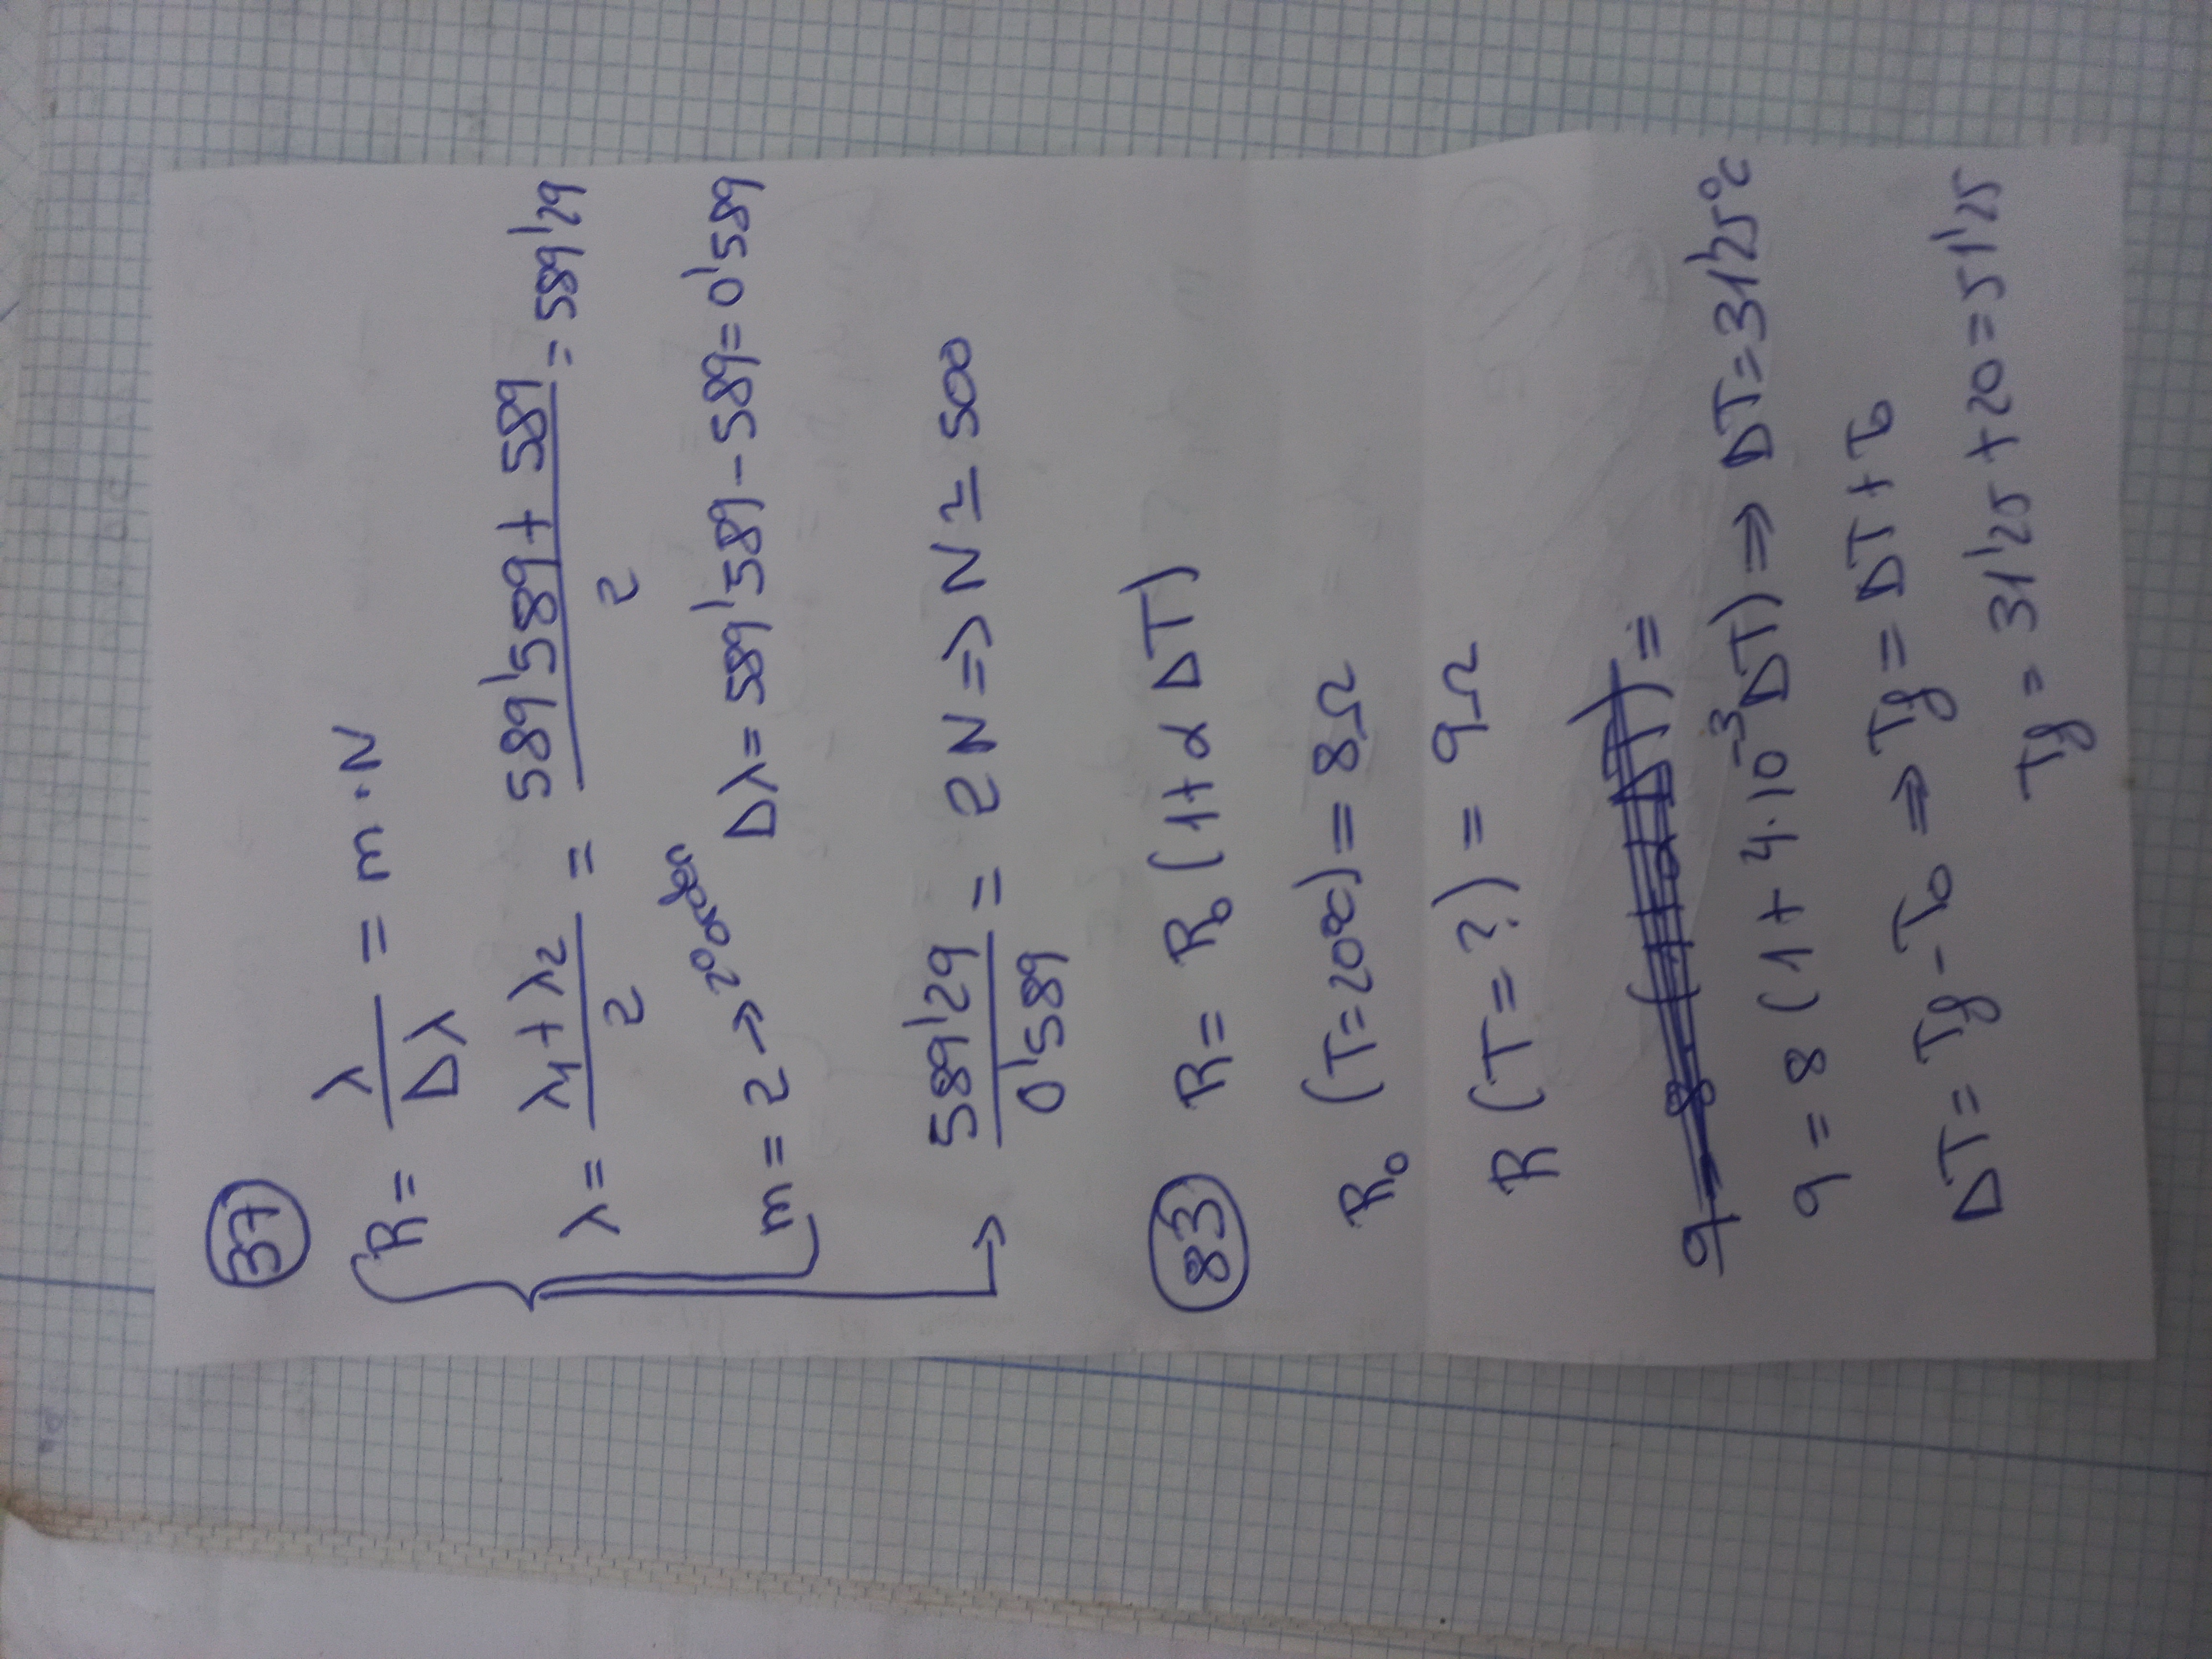 37
R = λ/Δλ = m · N
λ = (λ1 + λ2)/2 = (589'589 + 589)/2 = 589'29
m = 2 → 2º orden Δλ = 589'589 - 589 = 0'589
589'29/0'589 = 2N => N ≃ 500
83 R = R₀ (1 + α ΔT)
R₀ (T = 20ºC) = 8Ω
R (T = ?) = 9Ω
9 = 8 (1 + α ΔT) =
9 = 8 (1 + 4·10⁻³ ΔT) => ΔT = 31'25ºC
ΔT = Tf - T₀ => Tf = ΔT + T₀
Tf = 31'25 + 20 = 51'25